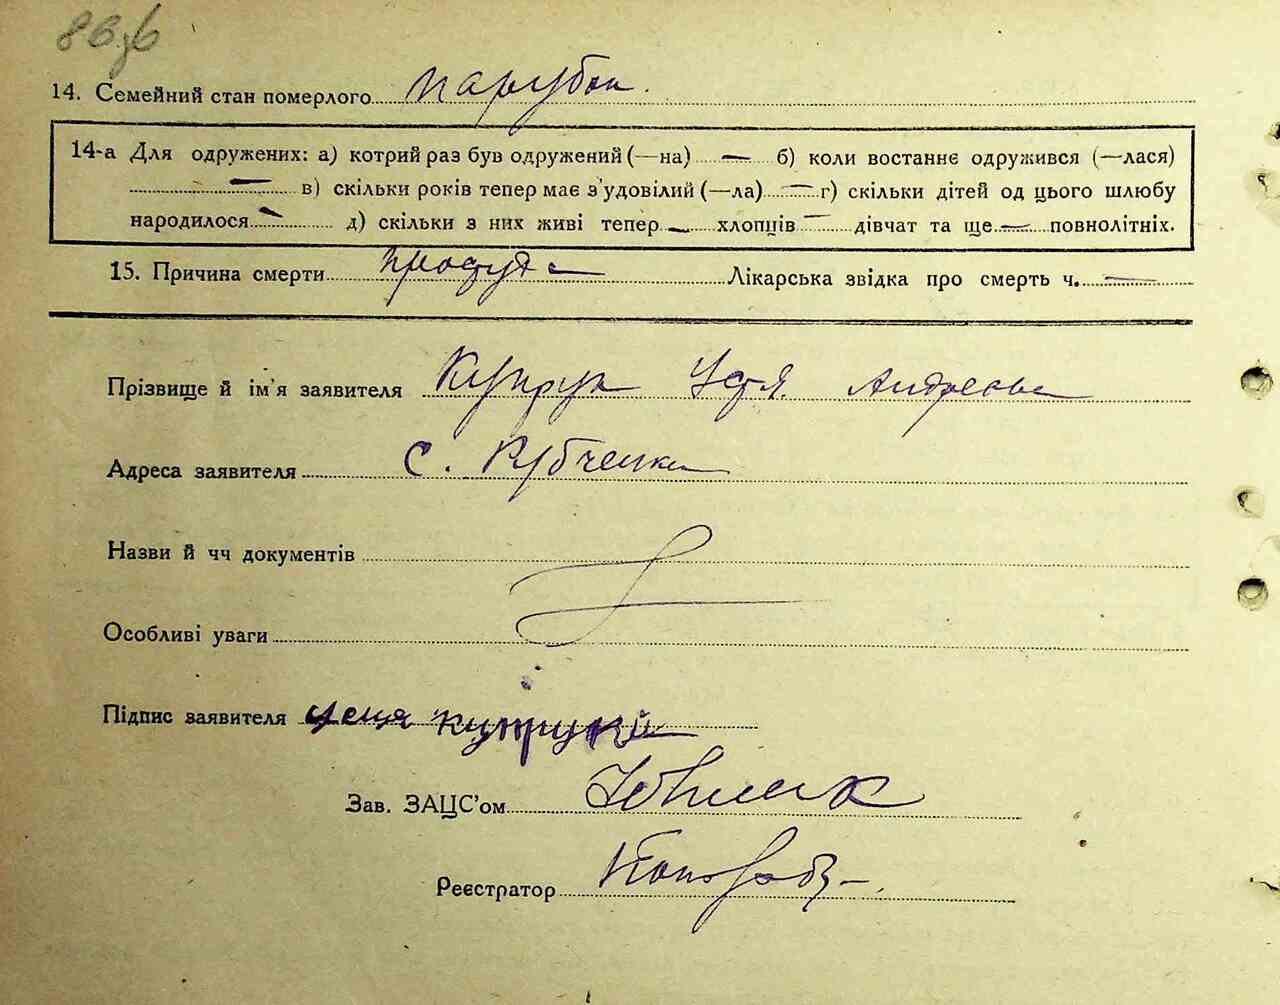 14. Семейний стан померлого парубок.
14-а Для одружених: а) котрий раз був одружений (—на) — б) коли востаннє одружився (—лася)
— в) скільки років тепер має з'удовілий (—ла) — г) скільки дітей од цього шлюбу
народилося — д) скільки з них живі тепер — хлопців — дівчат та ще — повнолітніх.
15. Причина смерти простуда Лікарська звідка про смерть ч. —
Прізвище й ім'я заявителя Купрук Устя Андреевна
Адреса заявителя с. Рубченки
Назви й чч документів
Особливі уваги
Підпис заявителя
Зав. ЗАЦС'ом
Реєстратор